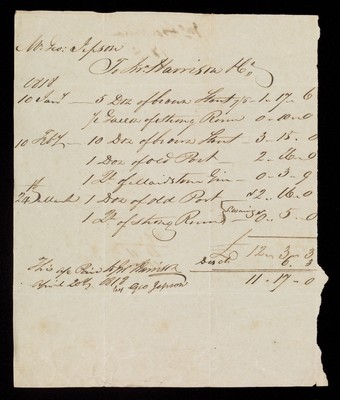 Mr Geo: Jepson
To Jno Harrison & Co
1818
10 Jany — 5 Doz of brown Stout 7/6 — 1 - 17 - 6
½ Gallon of Strong Rum — 0 - 10 - 0
10 Feby — 10 Doz of brown Stout — 3 - 15 - 0
1 Doz of old Port — 2 - 16 - 0
1 Qt of Maidstone Gin — 0 - 3 - 9
24th March 1 Doz of old Port 2 - 16 - 0
1 Qt of Strong Rum — 0 - 5 - 0
12 - 3 - 3
11 - 17 - 0
April 20th 1818 by Geo Jepson